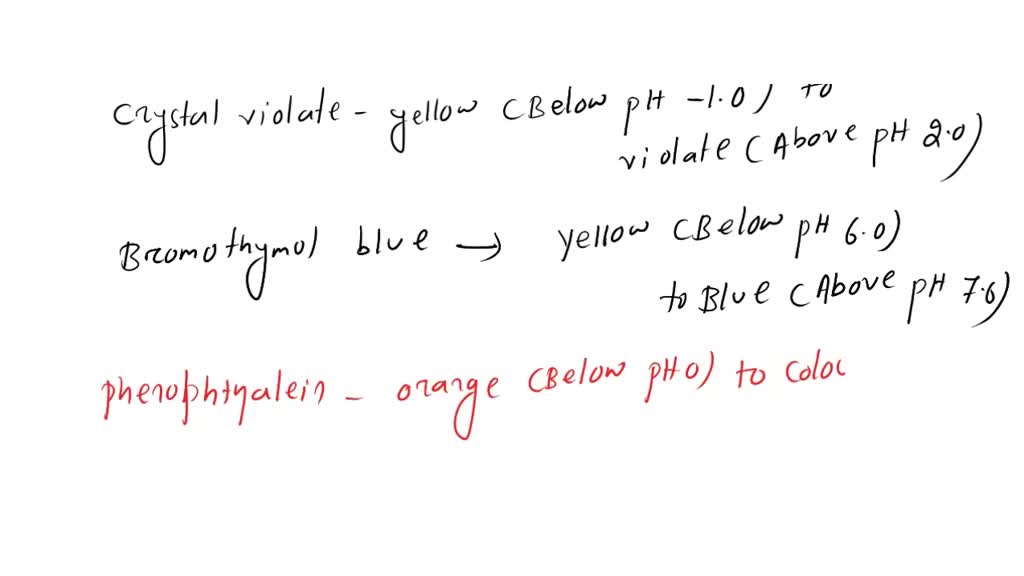 Crystal violate - yellow (Below pH -1.0) to
violate (Above pH 2.0)
Bromothymol blue → yellow (Below pH 6.0)
to Blue (Above pH 7.6)
phenophtyalein - orange (Below pH 0) to coloc